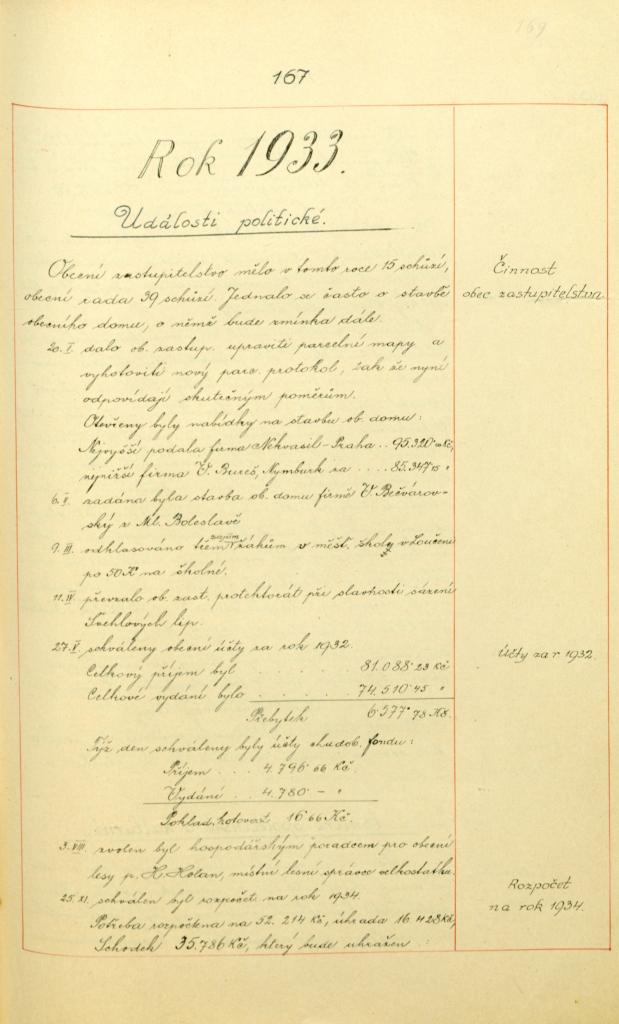 169
167
Rok 1933.
Události politické.
Obecní zastupitelstvo mělo v tomto roce 15 schůzí,
obecní rada 39 schůzí. Jednalo se často o stavbě
obecního domu, o němž bude zmínka dále.
Činnost
obec. zastupitelstva.
20. I. dalo ob. zastup. upraviti parcelné mapy a
vyhotoviti nový parc. protokol, tak že nyní
odpovídají skutečným poměrům.
Otevřeny byly nabídky na stavbu ob. domu:
Nejvyšší podala firma Nekvasil-Praha .. 95.320 Kč,
nejnižší firma V. Bureš, Nymburk za .... 85.347 15 "
6. II. zadána byla stavba ob. domu firmě V. Bečvárov-
ský z Ml. Boleslavě
9. III. odhlasováno třem žákům v měšť. školy v Loučeni
po 50 K na školné.
11. IV. převzalo ob. zast. protektorát při slavnosti sázení
Švehlových lip.
27. V. schváleny obecní účty za rok 1932.
Účty za r. 1932.
Celkový příjem byl . . . 81.088 23 Kč
Celkové vydání bylo . . . . 74.510 45 "
Přebytek 6577 78 Kč.
Týž den schváleny byly účty chudob. fondu:
Příjem . . . 4.796 66 Kč.
Vydání . . 4.780 - "
Poklad. hotovost 16 66 Kč.
3. VIII. zvolen byl hospodářským poradcem pro obecní
lesy p. H. Holan, místní lesní správce velkostatku.
25. XI. schválen byl rozpočet na rok 1934.
Rozpočet
na rok 1934.
Potřeba rozpočtena na 52.214 Kč, úhrada 16 428 Kč,
Schodek 35.786 Kč, který bude uhražen :